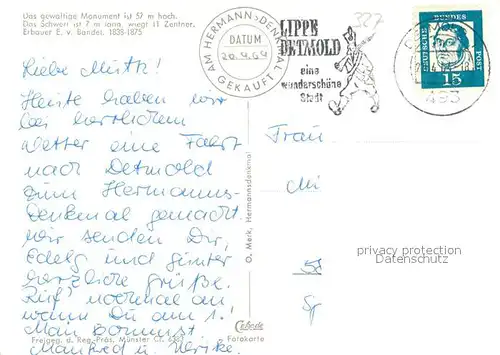 Das gewaltige Monument ist 57 m hoch.
Das Schwert ist 7 m lang, wiegt 11 Zentner.
Erbauer E. v. Bandel. 1838-1875
AM HERMANNSDENKMAL
DATUM
26.4.64
GEKAUFT
LIPPE
DETMOLD
eine
wunderschöne
Stadt
327
DEUTSCHE BUNDESPOST
15
493
Liebe Mutti!
Heute haben wir
bei herrlichem
Wetter eine Fahrt
nach Detmold
zum Hermanns-
Denkmal gemacht.
Wir senden Dir,
Edelg und Günter
herzliche Grüße.
Ruf' nochmal an
wann Du am 1.
Mai kommst
Manfred u. Ulrike.
Frau
Mi
O. Merk, Hermannsdenkmal
Freigeg. d. Reg.-Präs. Münster CT.
Cekade
Fotokarte
privacy protection
Datenschutz